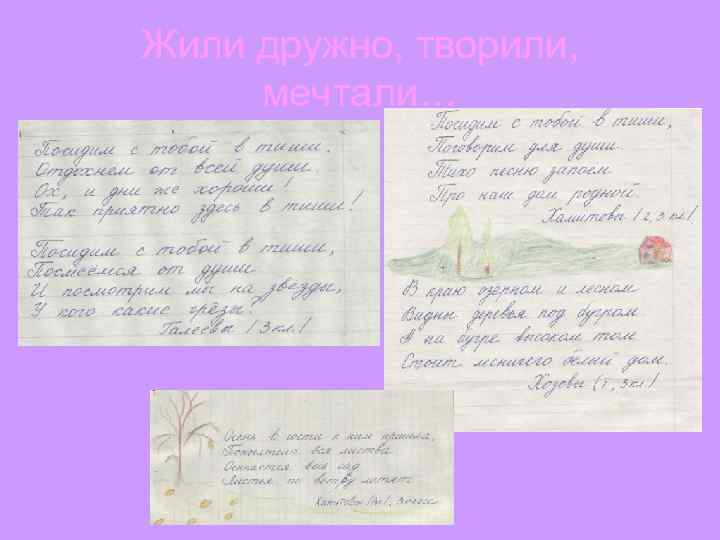 Жили дружно, творили,
мечтали…
Посидим с тобой в тиши.
Отдохнем от всей души.
Ох, и дни же хороши!
Так приятно здесь в тиши!
Посидим с тобой в тиши,
Посмеёмся от души
И посмотрим мы на звёзды,
У кого какие грёзы?
Галеевы (3 кл.)
Посидим с тобой в тиши,
Поговорим для души.
Тихо песню запоем
Про наш дом родной.
Хамитовы (2, 3 кл)
В краю озёрном и лесном
Видны деревья под бугром.
А на бугре высоком том
Стоит лесничего белый дом.
Хозовы (1, 3 кл)
Осень в гости к нам пришла,
вся листва
Осыпается весь сад
Листья по ветру летят